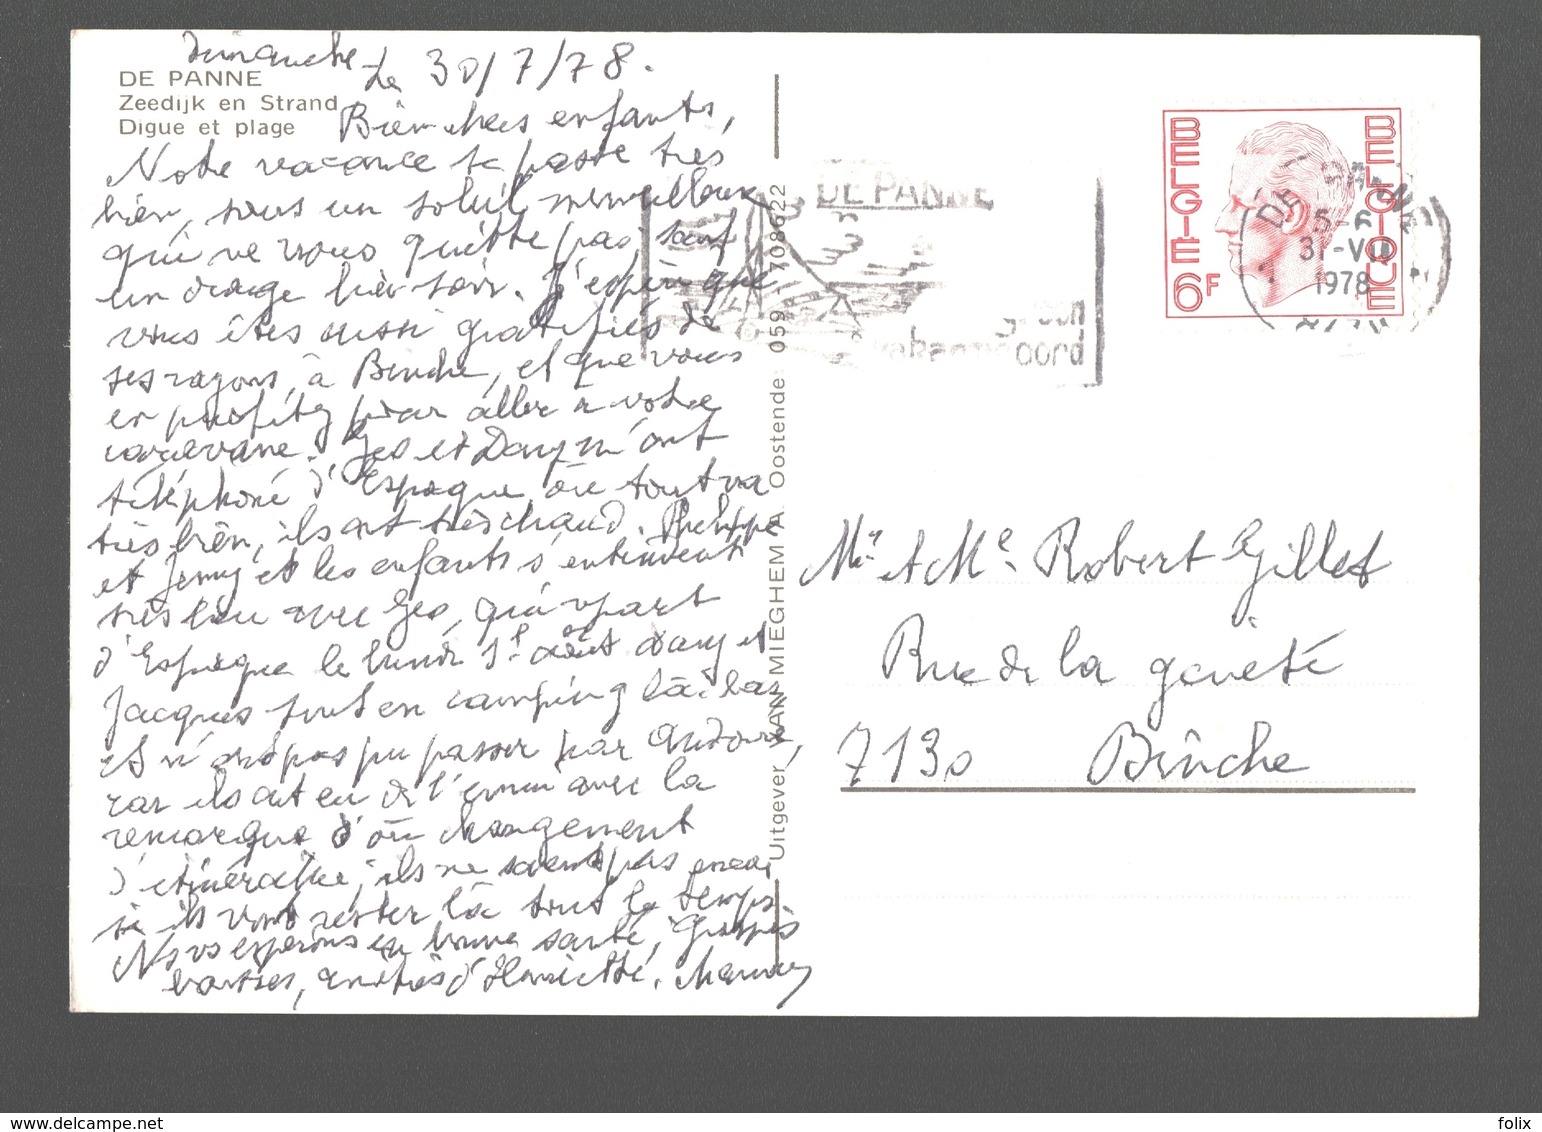 Dimanche Le 30/7/78.
DE PANNE
Zeedijk en Strand
Digue et plage
Bien chers enfants,
Notre vacance se passe très
bien, sous un soleil merveilleux
qui ne nous quitte pas, sauf
un orage hier soir. J'espère que
vous êtes aussi gratifiés de
ses rayons, à Binche, et que vous
en profitez pour aller à votre
caravane. Geo et Dany m'ont
téléphoné d'Espagne où tout va
très bien, ils ont très chaud. Philippe
et Jenny et les enfants s'entendent
très bien avec Geo, qui repart
d'Espagne le lundi 1er août Dany et
Jacques sont en camping là-bas
et n'ont pas pu passer par Andorre,
car ils ont eu de l'ennui avec la
remorque d'où changement
d'itinéraire, ils ne savent pas encore
si ils vont rester là tout le temps
Nous espérons en bonne santé,
baisers, amitiés d'Henriette. Maman
Uitgever VAN MIEGHEM A. Oostende 059 708922
DE PANNE
oord
BELGIE 6F
BELGIQUE
DE PANNE
31-VII
1978
Mr et Me Robert Gillet
Rue de la gaieté
7130 Binche
delcampe.net
folix